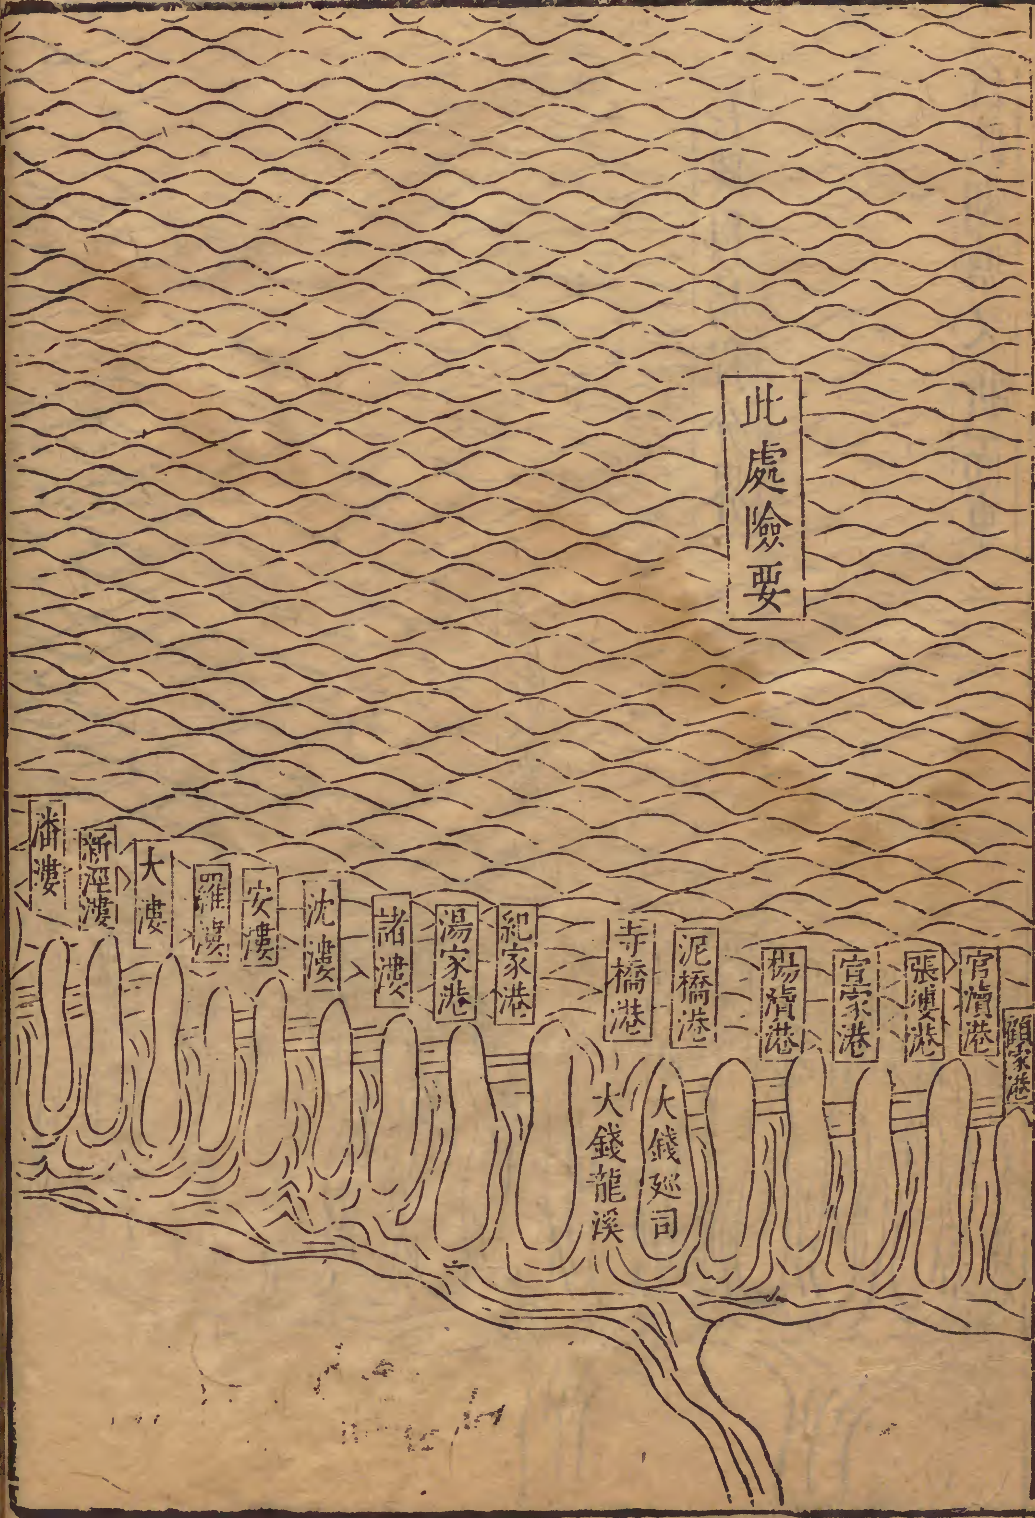 此處險要
顧家港
官瀆港
張婆港
宣家港
楊瀆港
泥橋港
寺橋港
紀家港
湯家港
諸漊
沈漊
安漊
羅漊
大漊
新涇漊
潘漊
大錢廵司
大錢龍溪